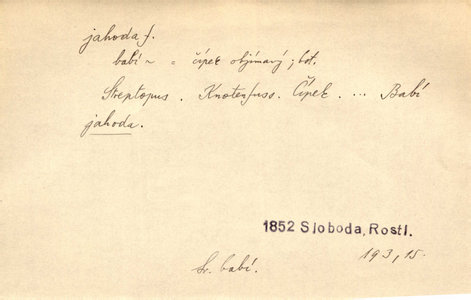 jahoda f.
babí ~ = čípek objímavý; bot.
Streptopus. Knotenfuss. Čípek. ... Babí
jahoda.
1852 Sloboda, Rostl.
193, 15.
Sr. babí.